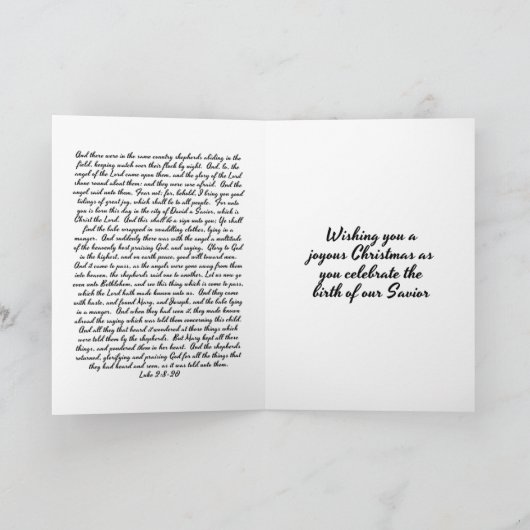 And there were in the same country shepherds abiding in the
field, keeping watch over their flock by night. And, lo, the
angel of the Lord came upon them, and the glory of the Lord
shone round about them: and they were sore afraid. And the
angel said unto them, Fear not: for, behold, I bring you good
tidings of great joy, which shall be to all people. For unto
you is born this day in the city of David a Savior, which is
Christ the Lord. And this shall be a sign unto you; Ye shall
find the babe wrapped in swaddling clothes, lying in a
manger. And suddenly there was with the angel a multitude
of the heavenly host praising God, and saying, Glory to God
in the highest, and on earth peace, good will toward men.
And it came to pass, as the angels were gone away from them
into heaven, the shepherds said one to another, Let us now go
even unto Bethlehem, and see this thing which is come to pass,
which the Lord hath made known unto us. And they came
with haste, and found Mary, and Joseph, and the babe lying
in a manger. And when they had seen it, they made known
abroad the saying which was told them concerning this child.
And all they that heard it wondered at those things which
were told them by the shepherds. But Mary kept all these
things, and pondered them in her heart. And the shepherds
returned, glorifying and praising God for all the things that
they had heard and seen, as it was told unto them.
Luke 2:8-20
Wishing you a
joyous Christmas as
you celebrate the
birth of our Savior